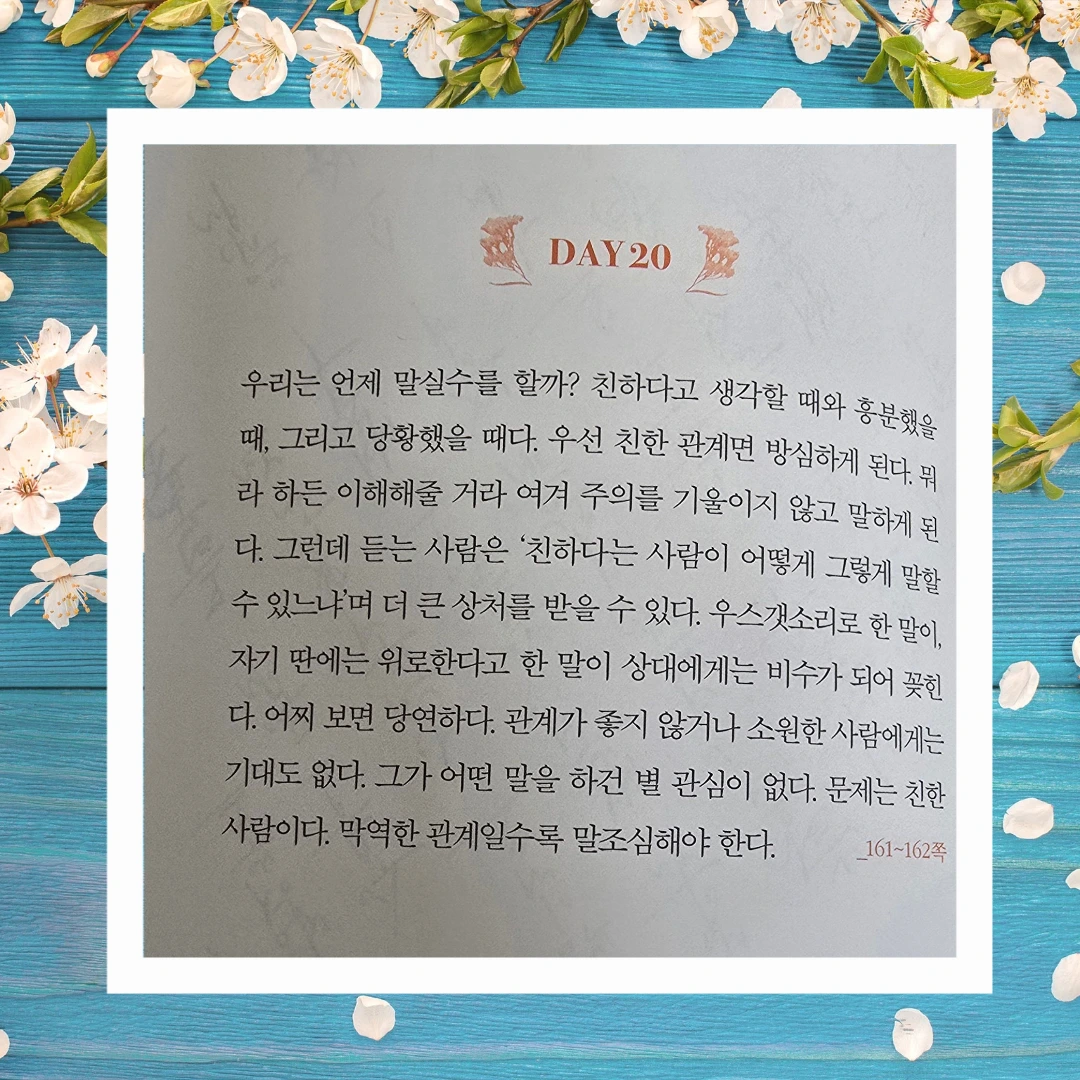 DAY 20
우리는 언제 말실수를 할까? 친하다고 생각할 때와 흥분했을
때, 그리고 당황했을 때다. 우선 친한 관계면 방심하게 된다. 뭐
라 하든 이해해줄 거라 여겨 주의를 기울이지 않고 말하게 된
다. 그런데 듣는 사람은 ‘친하다는 사람이 어떻게 그렇게 말할
수 있느냐’며 더 큰 상처를 받을 수 있다. 우스갯소리로 한 말이,
자기 딴에는 위로한다고 한 말이 상대에게는 비수가 되어 꽂힌
다. 어찌 보면 당연하다. 관계가 좋지 않거나 소원한 사람에게는
기대도 없다. 그가 어떤 말을 하건 별 관심이 없다. 문제는 친한
사람이다. 막역한 관계일수록 말조심해야 한다.
_161~162쪽